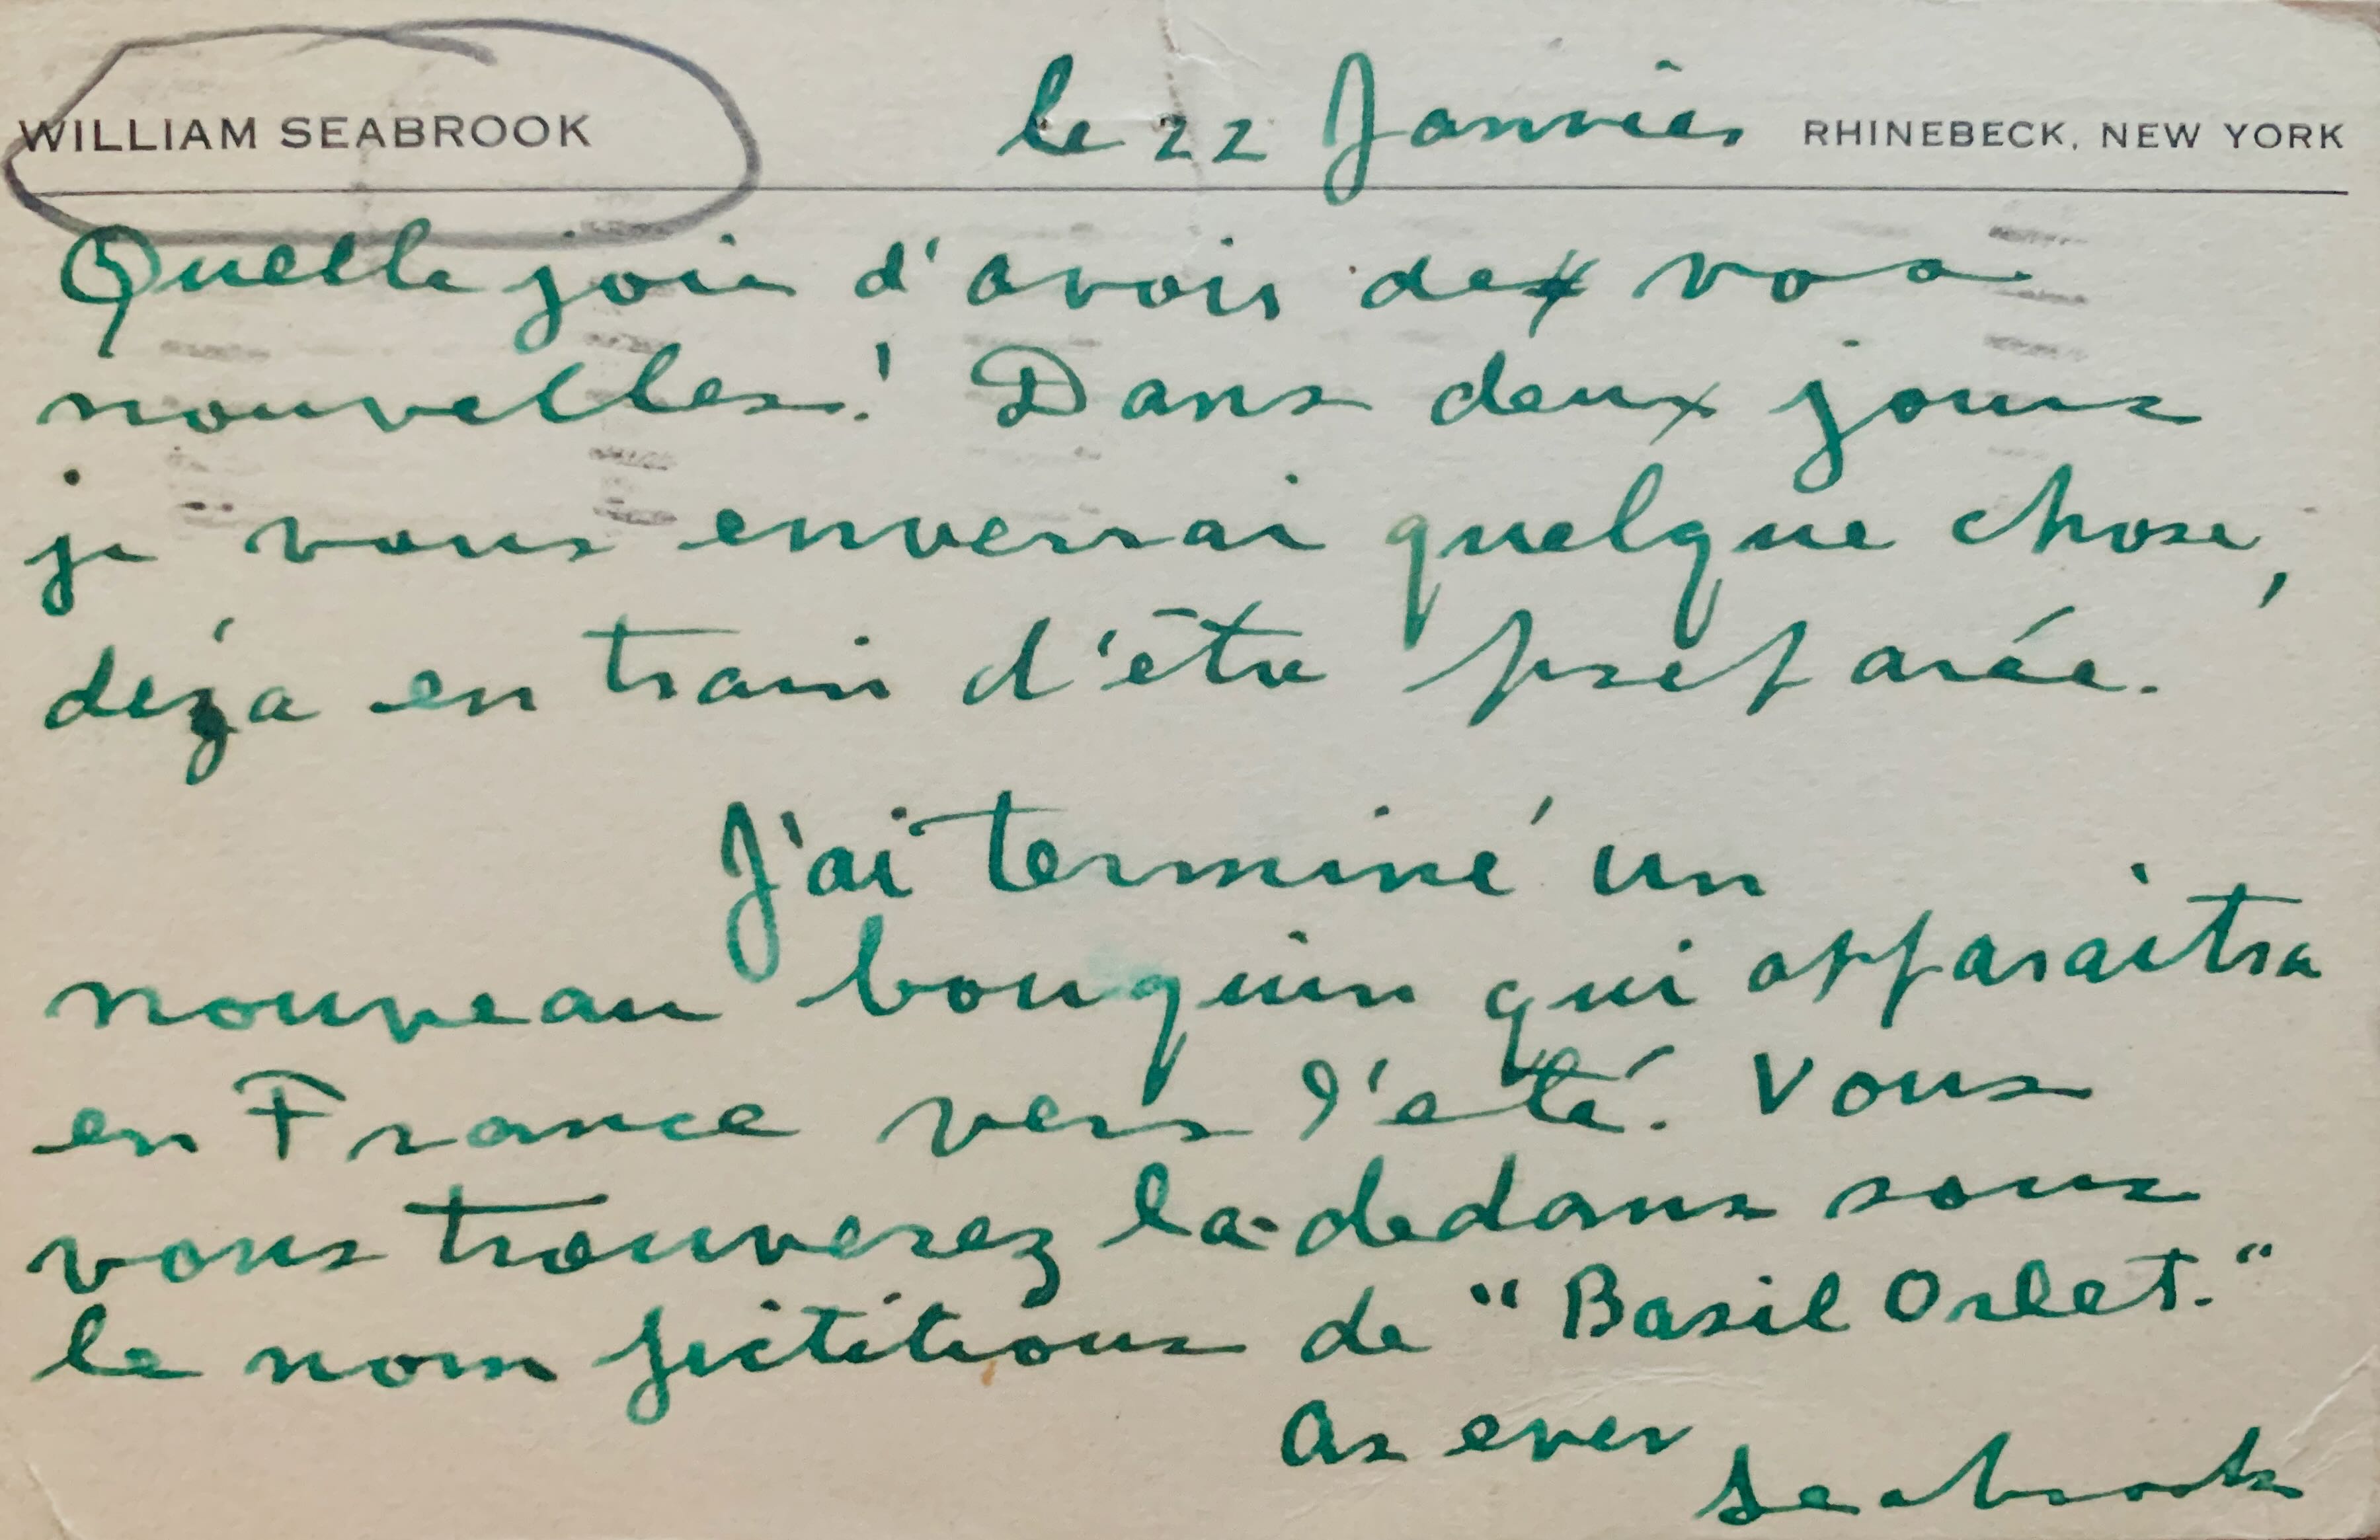 WILLIAM SEABROOK le 22 Janvier RHINEBECK, NEW YORK
Quelle joie d'avoir de vos
nouvelles! Dans deux jours
je vous enverrai quelque chose,
déja en train d'être preparée.
J'ai terminé un
nouveau bouquin qui apparaitra
en France vers l'eté. Vous
vous trouverez la-dedans sous
le nom fictitious de "Basil Orlet."
As ever
Seabrook